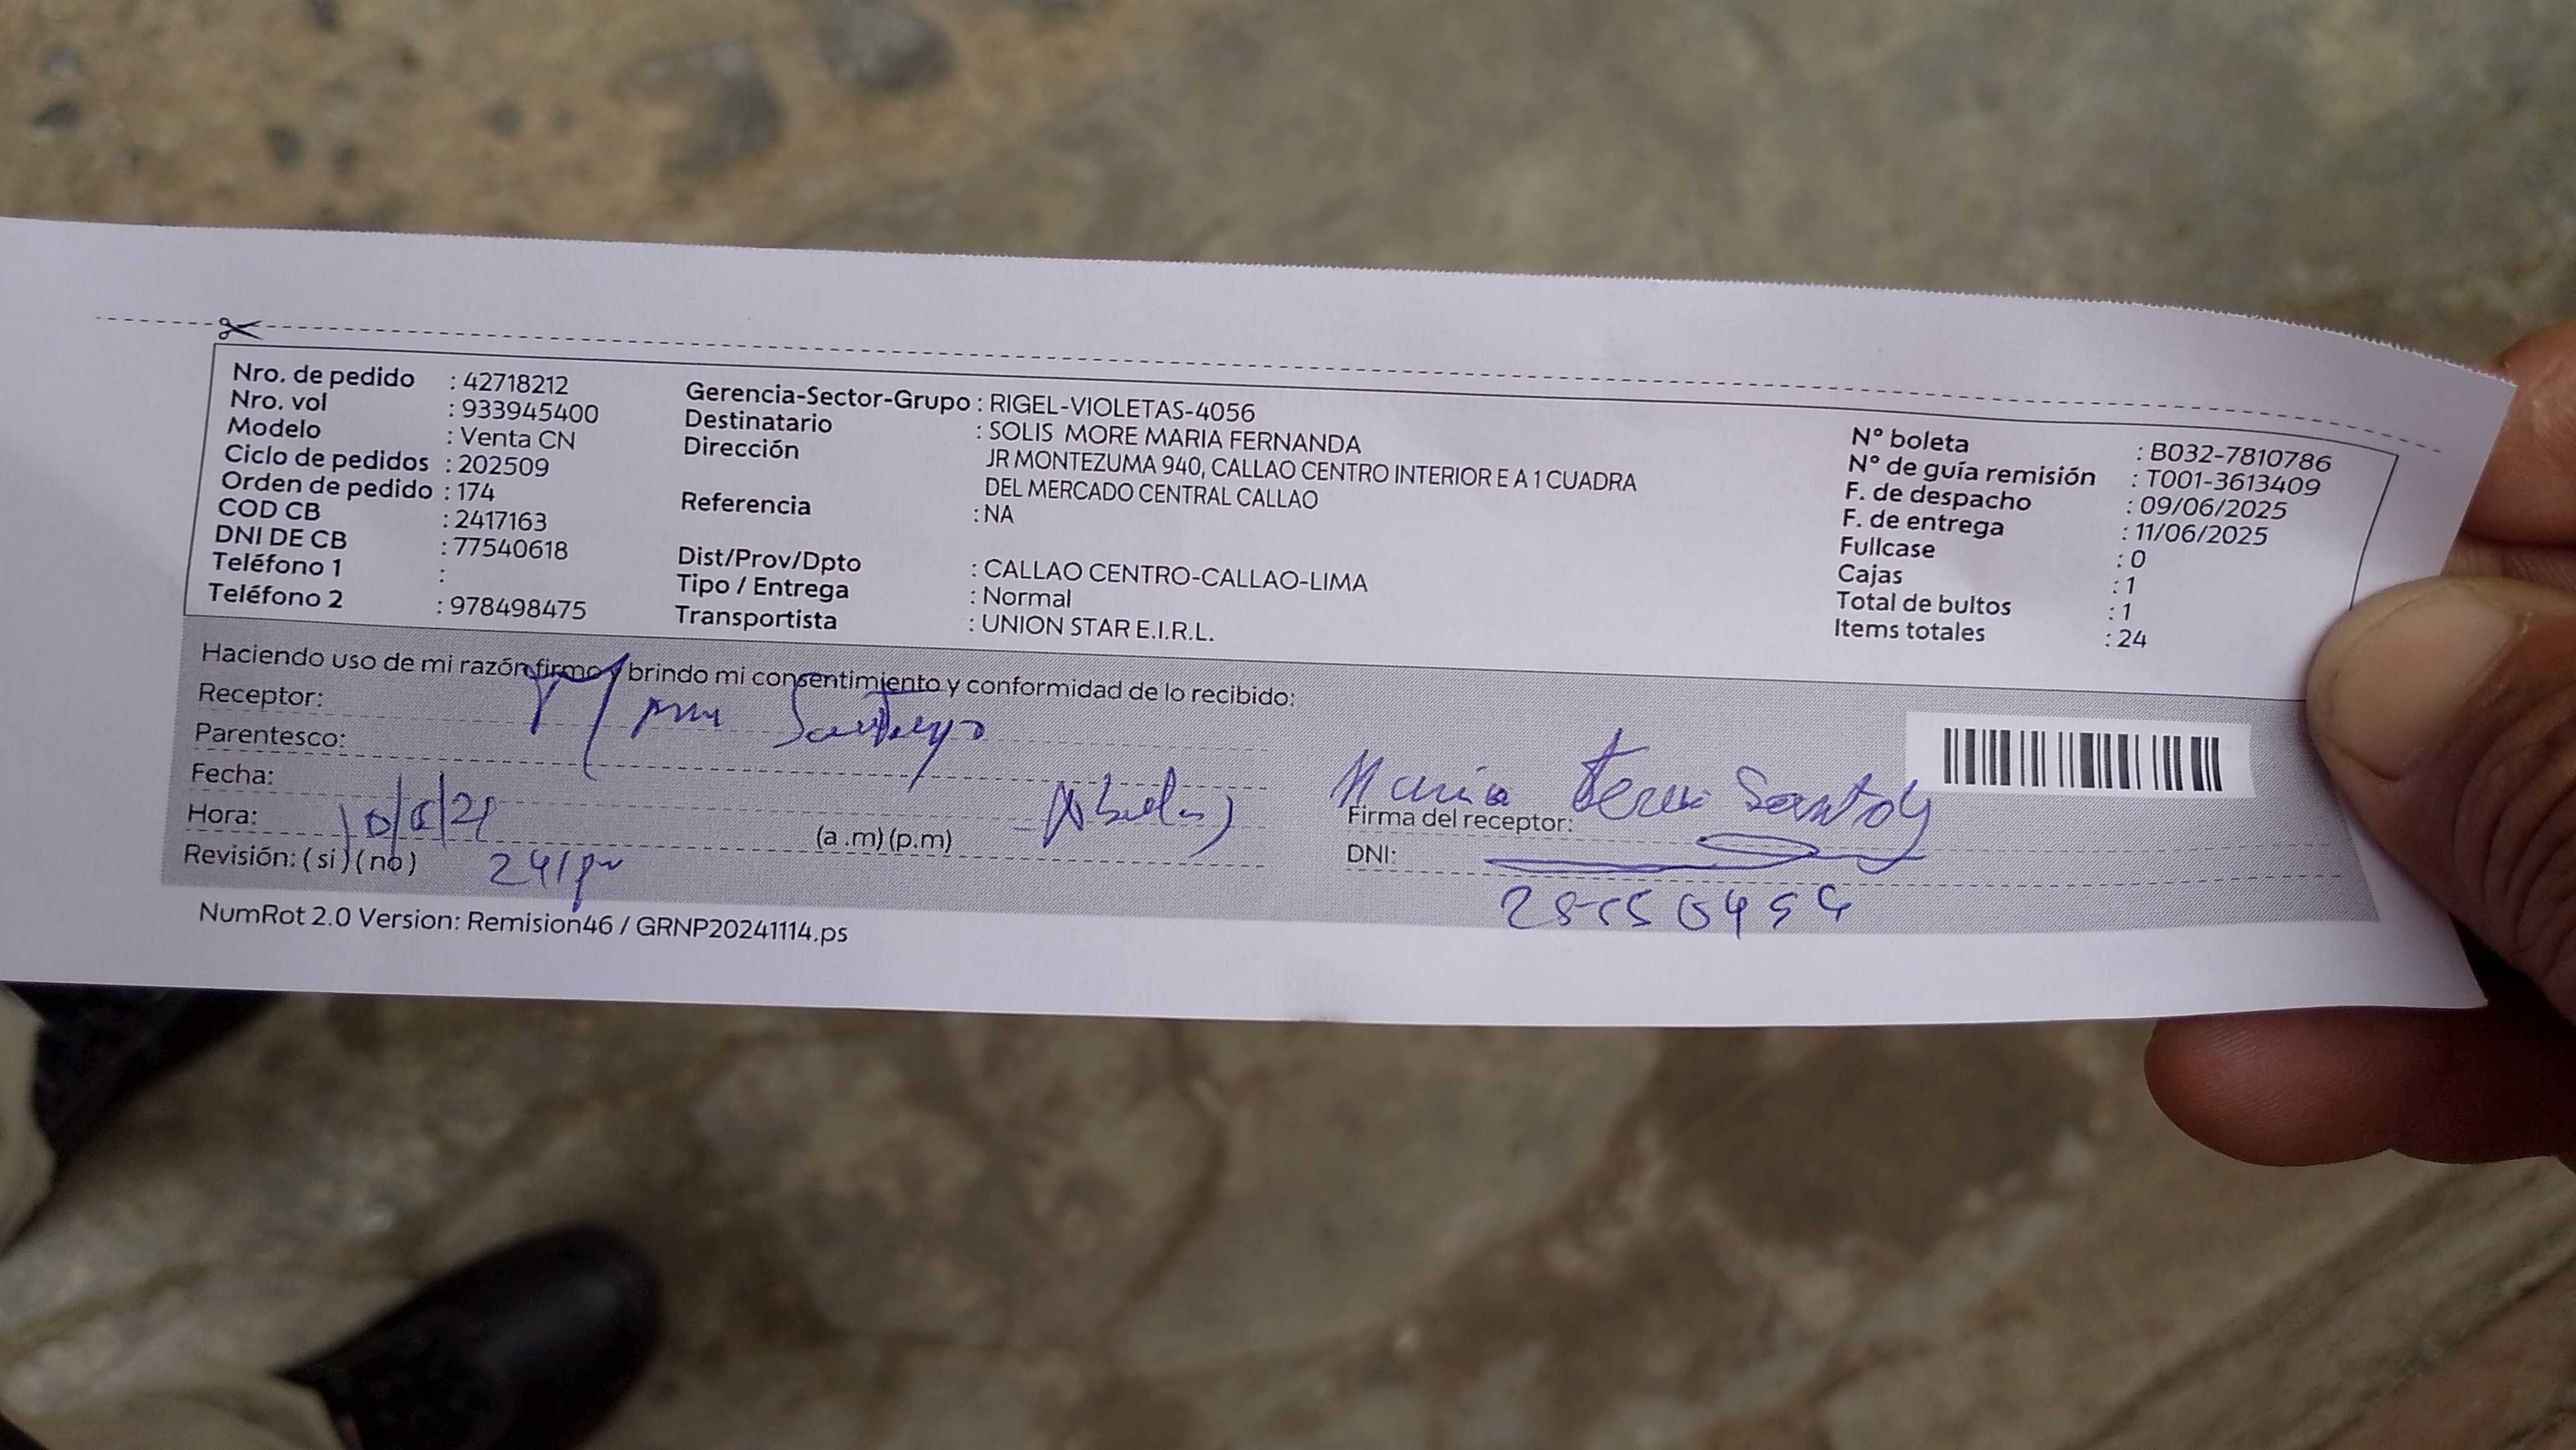 Nro. de pedido : 42718212
Nro. vol : 933945400
Modelo : Venta CN
Ciclo de pedidos : 202509
Orden de pedido : 174
COD CB : 2417163
DNI DE CB : 77540618
Teléfono 1 :
Teléfono 2 : 978498475
Gerencia-Sector-Grupo : RIGEL-VIOLETAS-4056
Destinatario : SOLIS MORE MARIA FERNANDA
Dirección JR MONTEZUMA 940, CALLAO CENTRO INTERIOR E A 1 CUADRA
DEL MERCADO CENTRAL CALLAO
Referencia : NA
Dist/Prov/Dpto : CALLAO CENTRO-CALLAO-LIMA
Tipo / Entrega : Normal
Transportista : UNION STAR E.I.R.L.
N° boleta : B032-7810786
N° de guía remisión : T001-3613409
F. de despacho : 09/06/2025
F. de entrega : 11/06/2025
Fullcase : 0
Cajas : 1
Total de bultos : 1
Items totales : 24
Haciendo uso de mi razón firmo y brindo mi consentimiento y conformidad de lo recibido:
Receptor:
Parentesco:
Fecha:
Hora: (a .m) (p.m)
Revisión: ( si ) ( no )
Maria Santos
Firma del receptor:
DNI:
NumRot 2.0 Version: Remision46 / GRNP20241114.ps